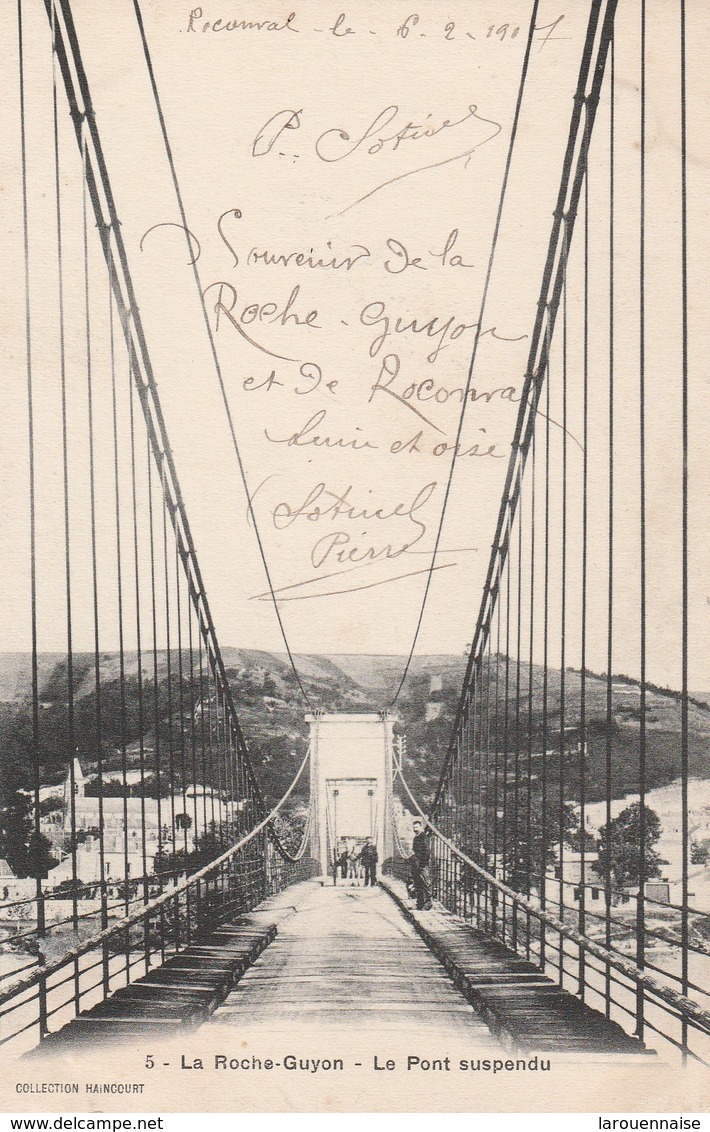 Roconval - le - 6. 2. 1907
P. Sotinel
Souvenir de la
Roche-Guyon
et de Roconval
Seine et oise
Sotinel
Pierre
5 - La Roche-Guyon - Le Pont suspendu
COLLECTION HAINCOURT
larouennaise